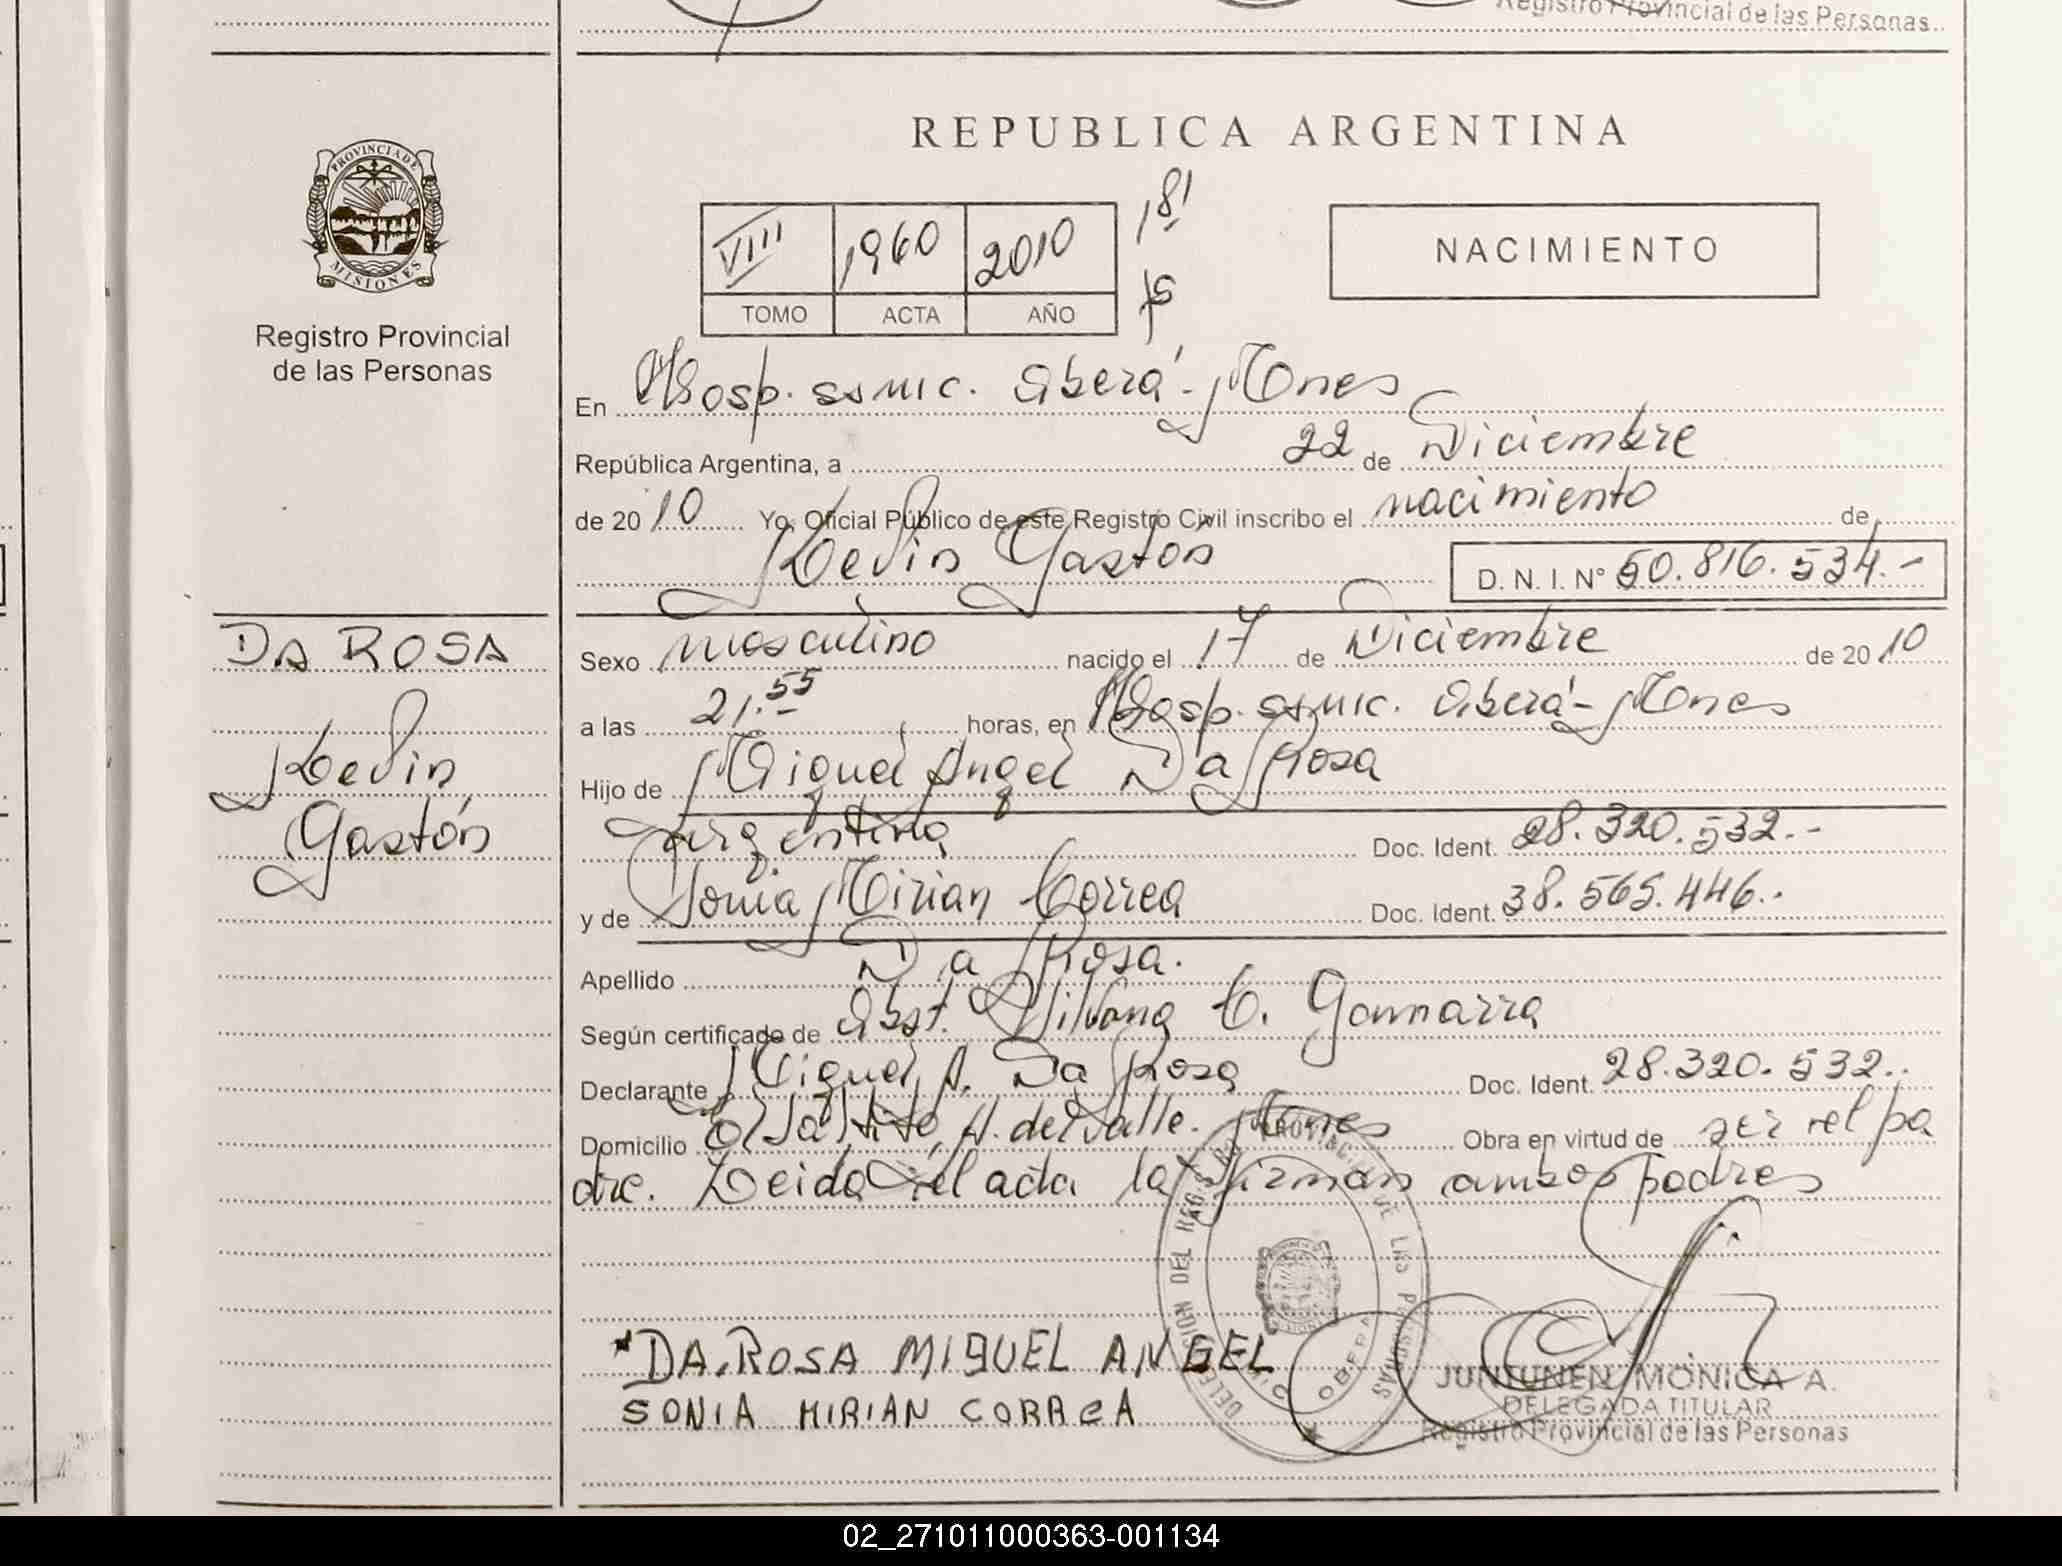 Registro Provincial de las Personas
PROVINCIA DE
MISIONES
Registro Provincial
de las Personas
REPUBLICA ARGENTINA
VIII 1960 2010 181
TOMO ACTA AÑO
NACIMIENTO
En Hosp. ssmic. Oberá - Mnes
República Argentina, a 22 de Diciembre
de 2010 Yo, Oficial Público de este Registro Civil inscribo el nacimiento de
Kevin Gastón D. N. I. Nº 50.816.534.-
DA ROSA
Kevin
Gastón
Sexo masculino nacido el 17 de Diciembre de 2010
a las 21.55 horas, en Hosp. ssmic. Oberá - Mnes
Hijo de Miguel Angel Da Rosa
argentina Doc. Ident. 28.320.532.-
y de Sonia Mirian Correa Doc. Ident. 38.565.446.-
Apellido Da Rosa.
Según certificado de Obst. Silvana C. Gamarra
Declarante Miguel A. Da Rosa Doc. Ident. 28.320.532..
Domicilio A. del Valle. Mnes Obra en virtud de ser el pa
dre. Leida el acta la firman ambos padres
DA ROSA MIGUEL ANGEL
SONIA MIRIAN CORREA
DELEGACION DEL REG. PROVINCIAL DE LAS PERSONAS
OBERA
JUNTUNEN MÓNICA A.
DELEGADA TITULAR
Registro Provincial de las Personas
02_271011000363-001134